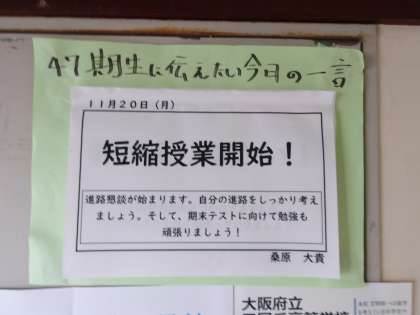 47期生に伝えたい今日の一言
11月20日（月）
短縮授業開始！
進路懇談が始まります。自分の進路をしっかり考え
ましょう。そして、期末テストに向けて勉強も
頑張りましょう！
桑原　大貴
大阪府立